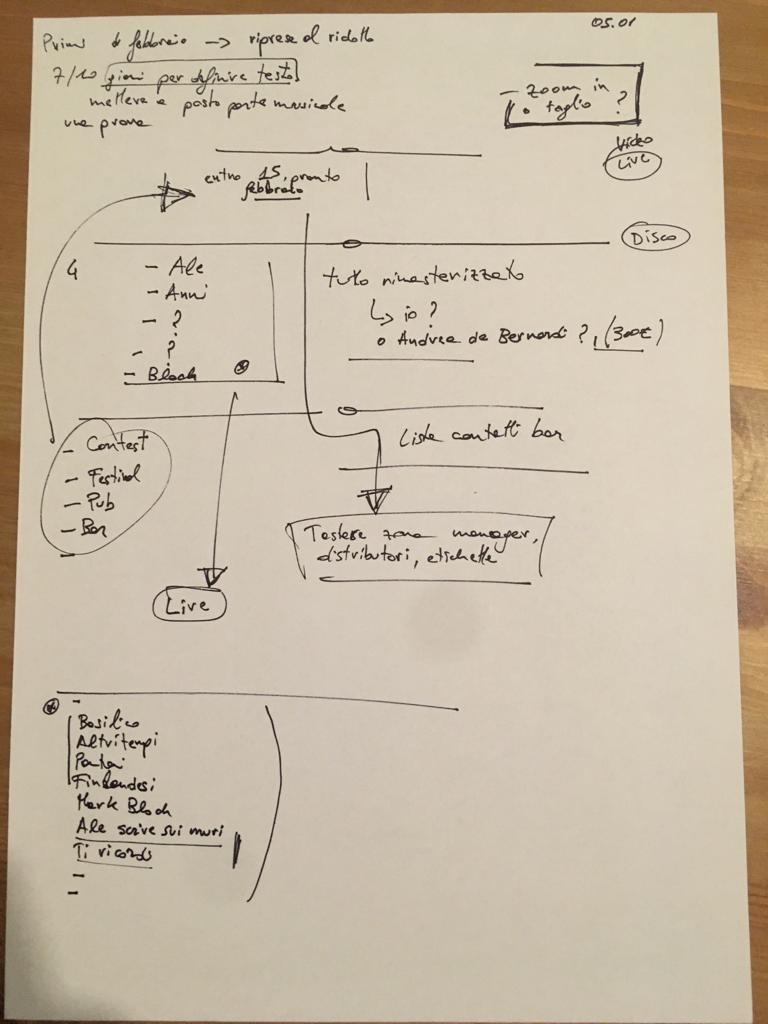 05.01
Primi di febbraio → riprese al ridotto
7/10 giorni per definire testo
mettere a posto parte musicale
una prova
- zoom in
o taglio ?
Video
Live
entro 15 pronto
febbraio
Disco
- Ale
- Anni
- ?
- ?
- Block
tutto rimasterizzato
↳ io ?
o Andrea de Bernardi ?, (300€)
- Contest
- Festival
- Pub
- Bar
Lista contatti bar
Tastare zona manager,
distributori, etichette
Live
Basilico
Altritempi
Finlandesi
Mark Block
Ale scrive sui muri
Ti ricordi